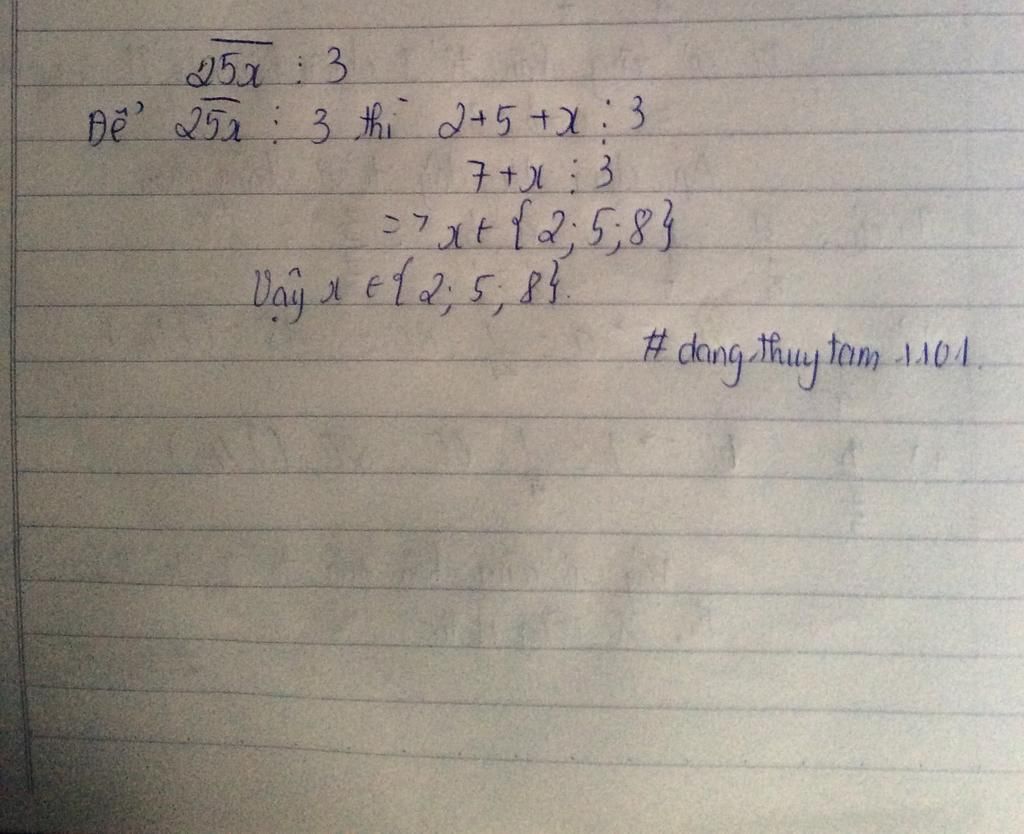 2̅5̅x̅ ⋮ 3
Để 2̅5̅x̅ ⋮ 3 thì 2+5+x ⋮ 3
7+x ⋮ 3
=> x ∈ {2; 5; 8}
Vậy x ∈ {2; 5; 8}.
# dang.thuy tam 1101.